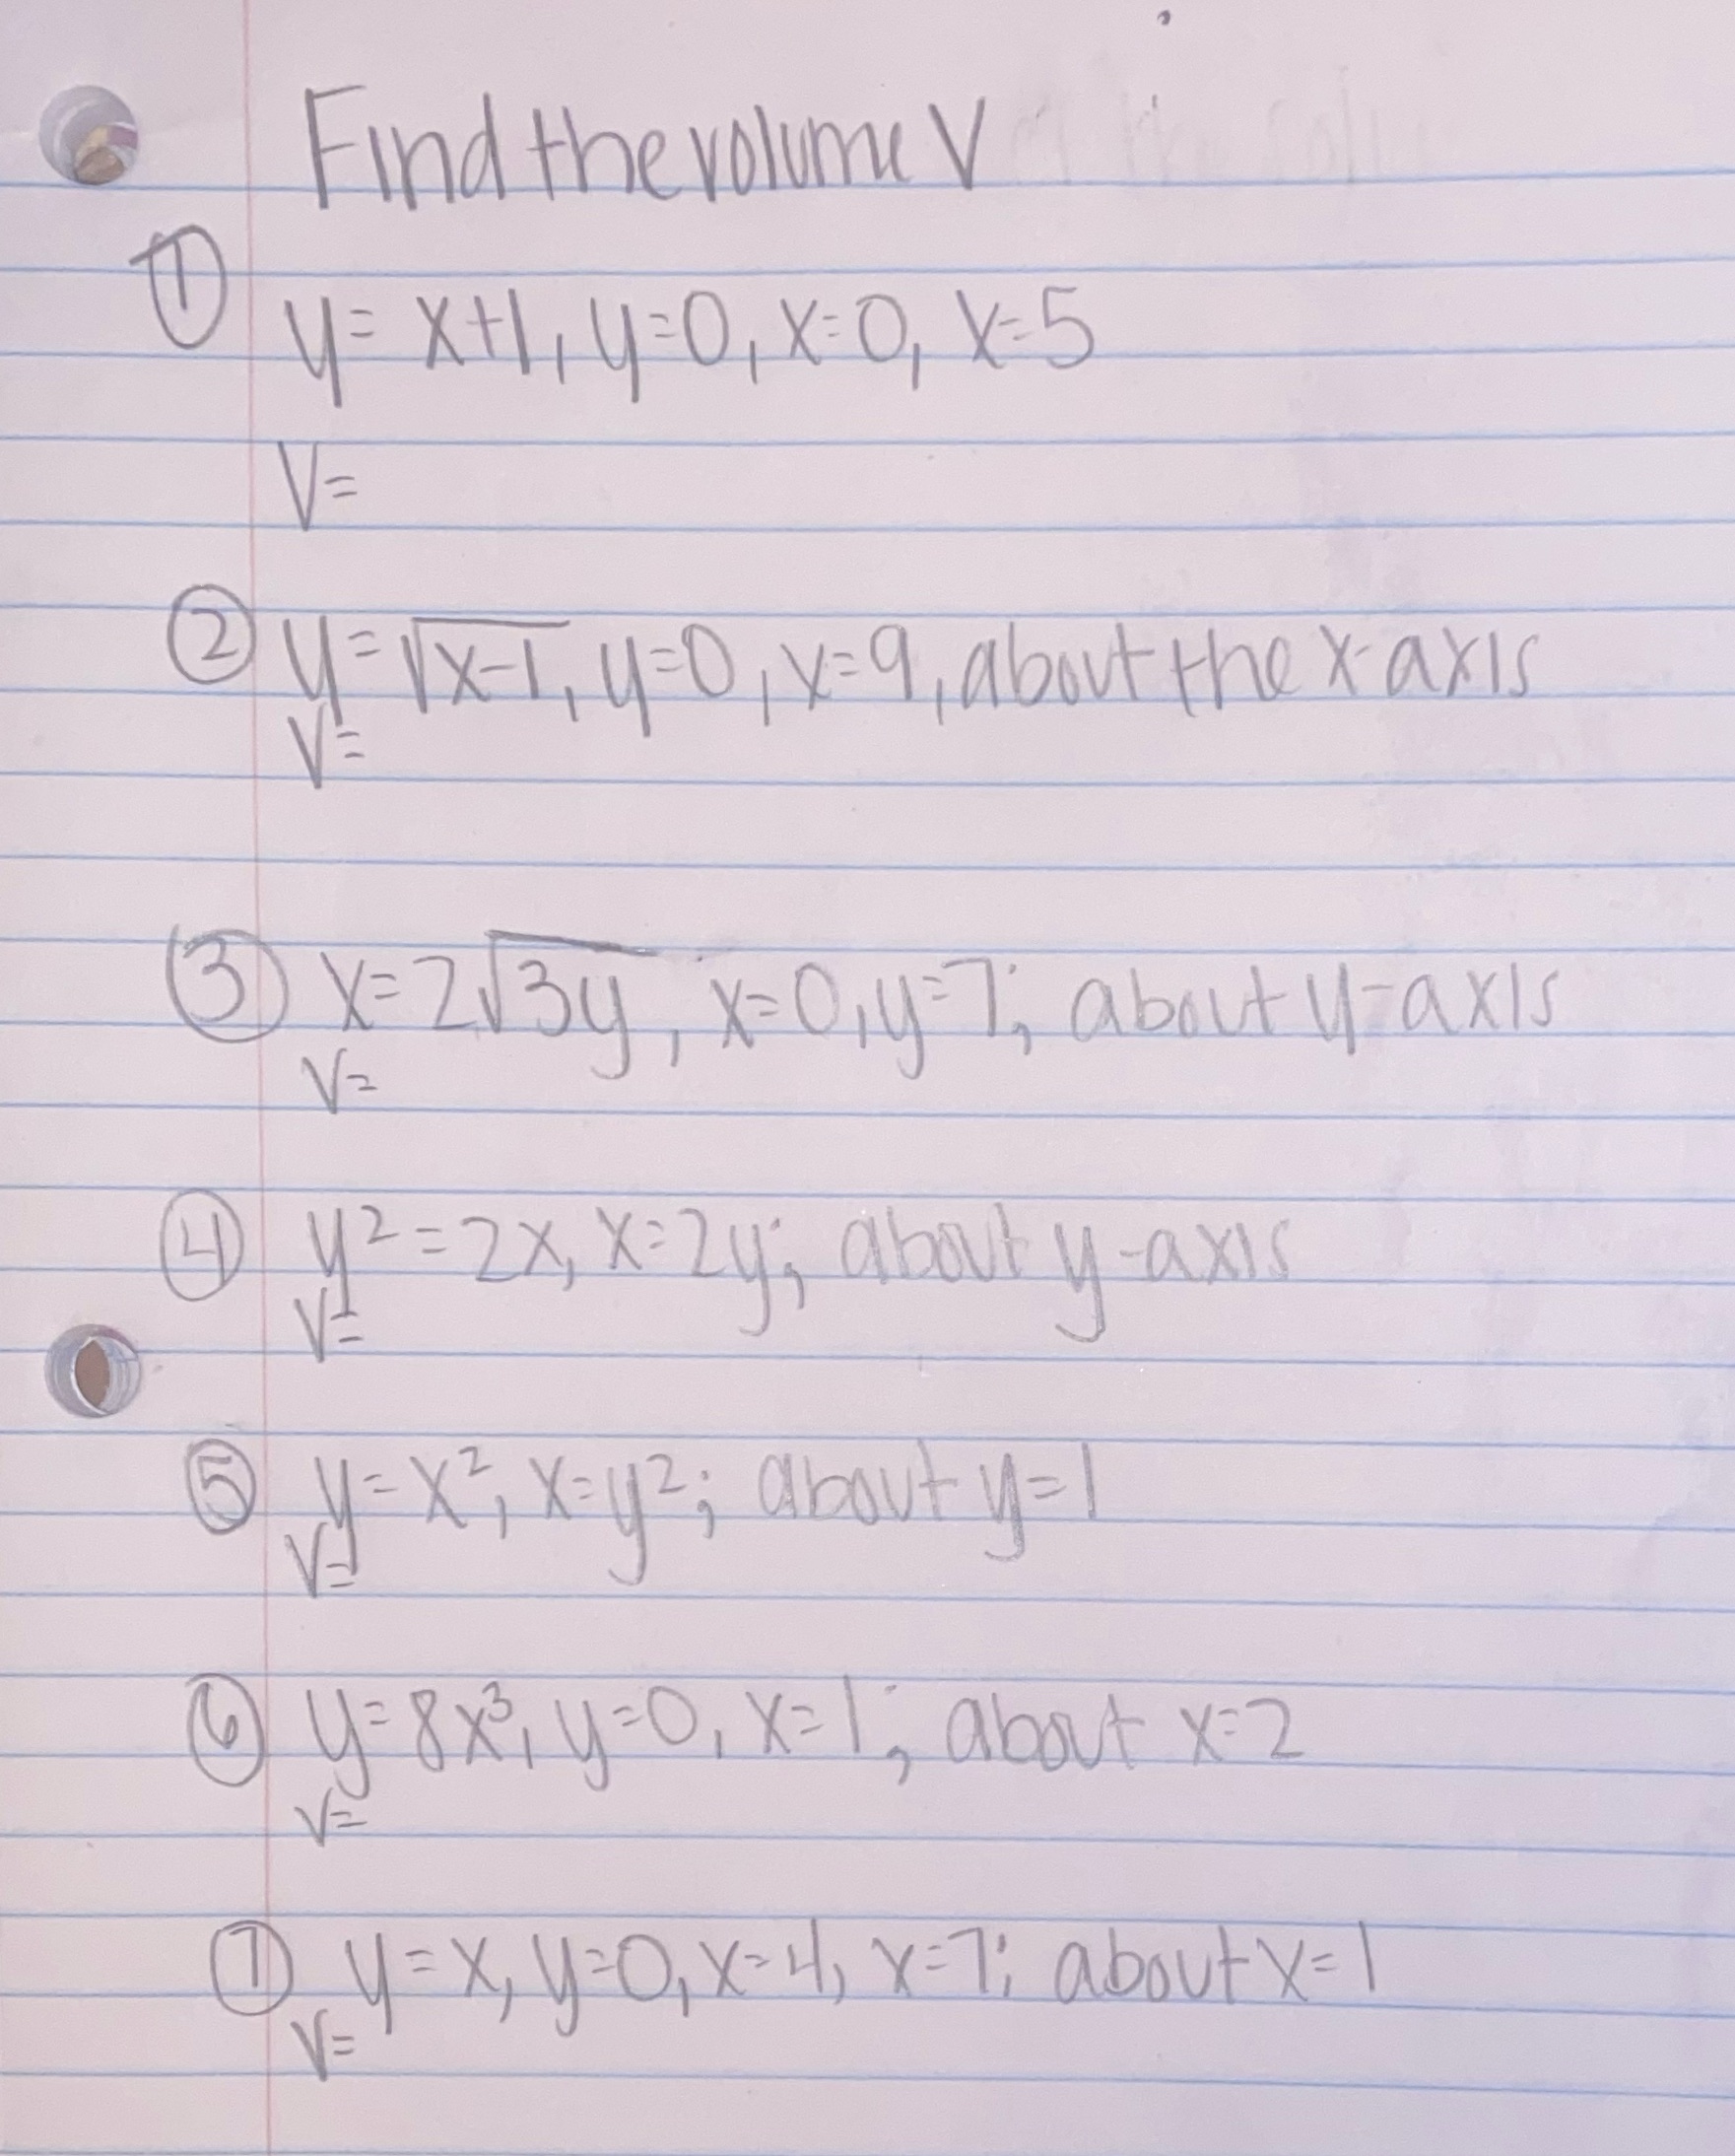 Find the volume V
① y = x+1, y=0, x=0, x=5
V=
② y=√x-1, y=0, x=9, about the x-axis
V=
③ x=2√3y, x=0, y=7; about y-axis
V=
④ y²=2x, x=2y; about y-axis
V=
⑤ y=x², x=y²; about y=1
V=
⑥ y=8x³, y=0, x=1; about x=2
V=
⑦ y=x, y=0, x=4, x=7; about x=1
V=